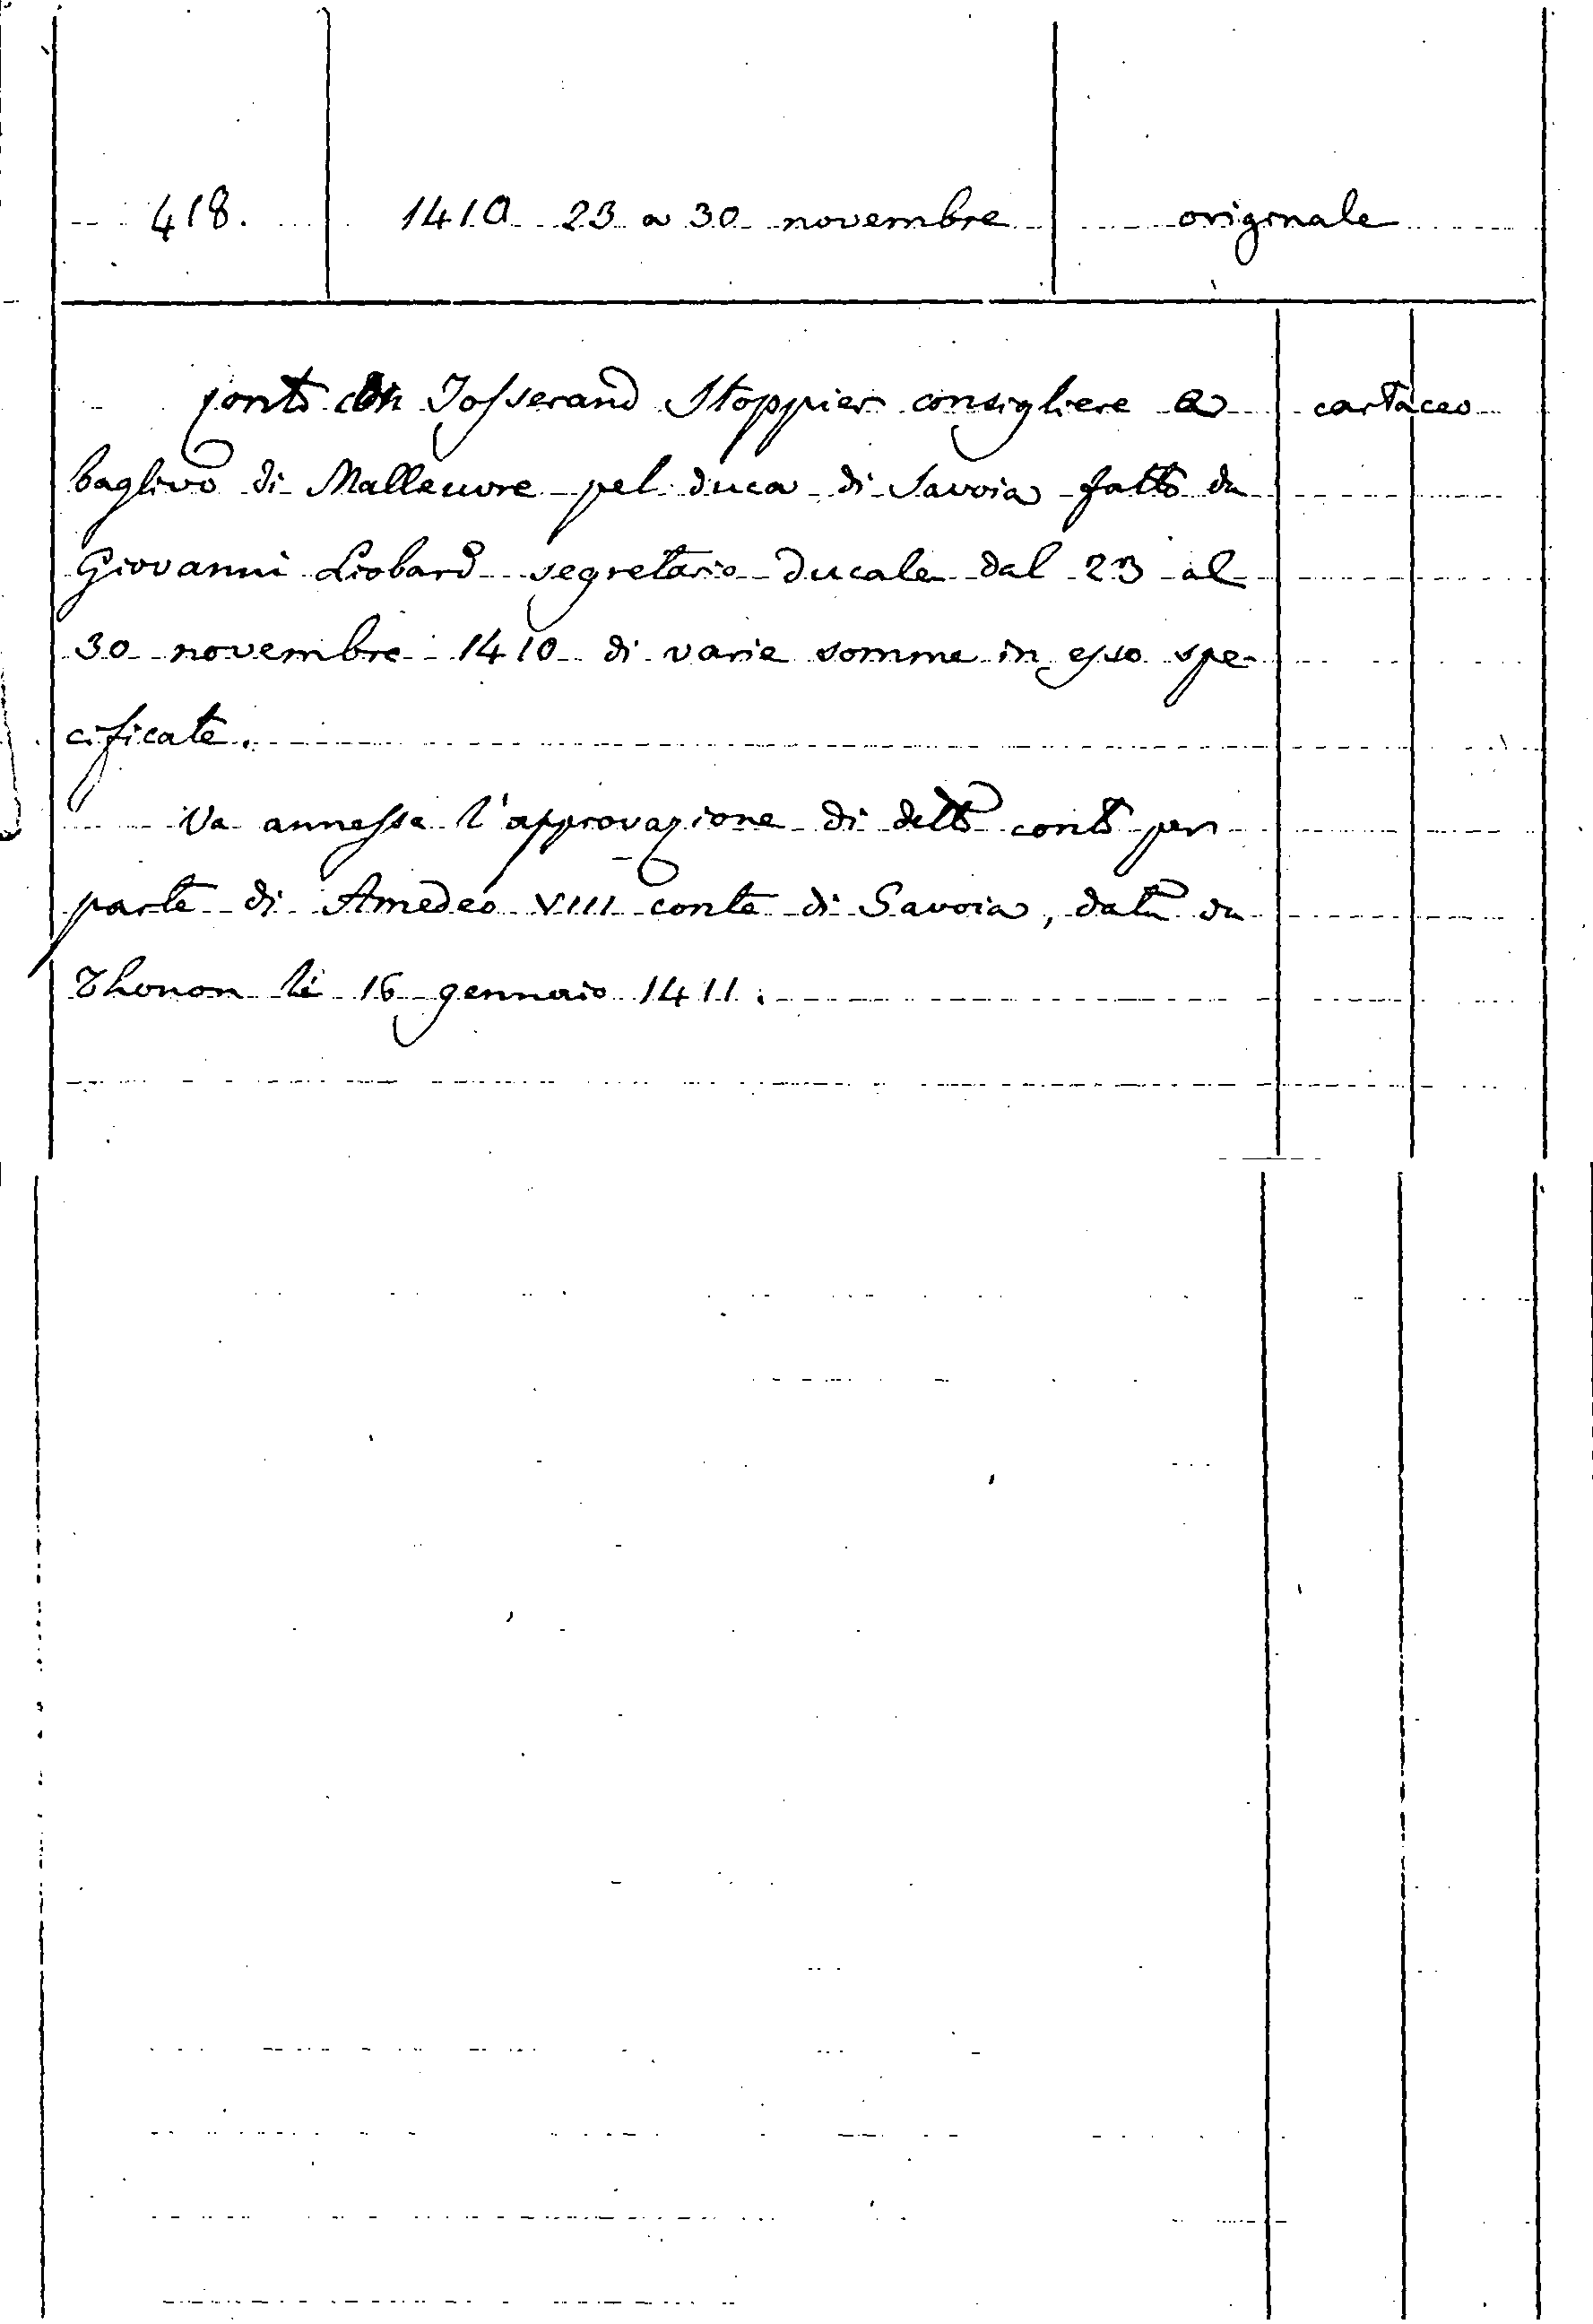 418. 1410 23 a 30 novembre originale
Conto con Josserand Stoppier consigliere e cartaceo
baglivo di Mallevore pel duca di Savoia fatto da
Giovanni Liobard segretario ducale dal 23 al
30 novembre 1410 di varie somme in esso spe-
cificate.
Va annessa l'approvazione di detto conto per
parte di Amedeo VIII conte di Savoia, data da
Thonon li 16 gennaio 1411.